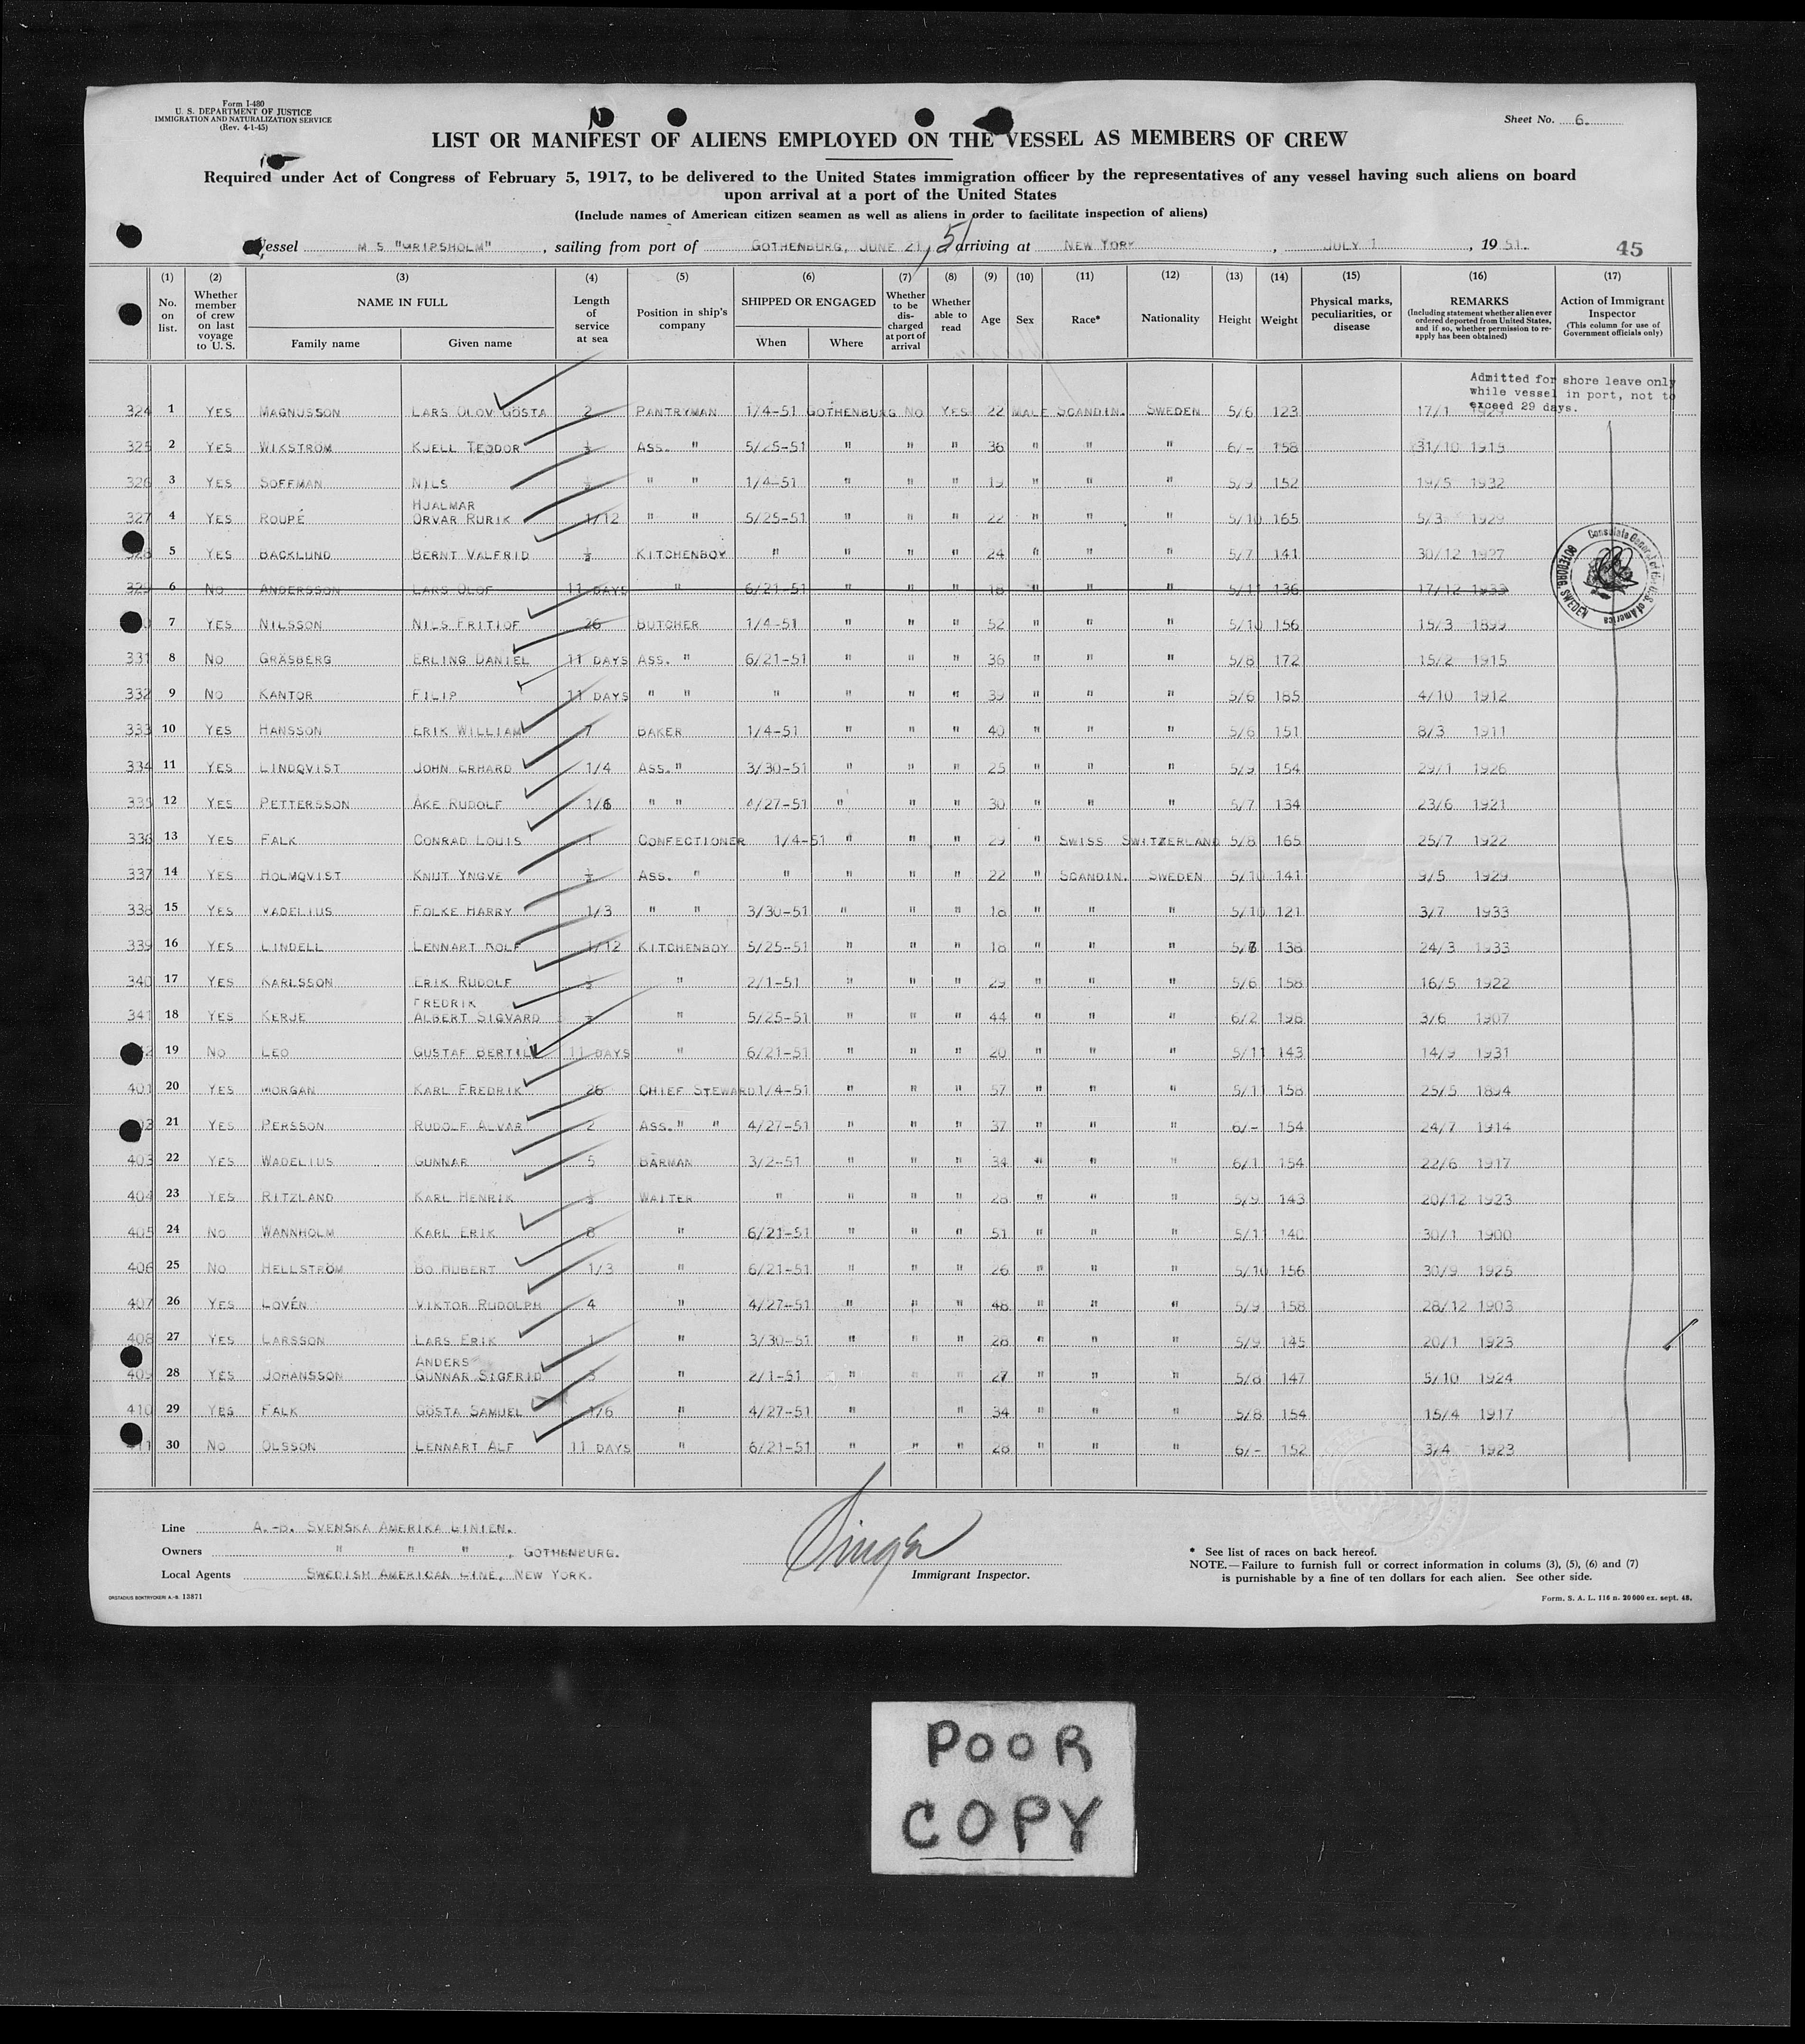 Form I-480
U. S. DEPARTMENT OF JUSTICE
IMMIGRATION AND NATURALIZATION SERVICE
(Rev. 4-1-45)
Sheet No. 6.
LIST OR MANIFEST OF ALIENS EMPLOYED ON THE VESSEL AS MEMBERS OF CREW
Required under Act of Congress of February 5, 1917, to be delivered to the United States immigration officer by the representatives of any vessel having such aliens on board
upon arrival at a port of the United States
(Include names of American citizen seamen as well as aliens in order to facilitate inspection of aliens)
Vessel M S "GRIPSHOLM", sailing from port of GOTHENBURG, JUNE 21, 51 arriving at NEW YORK, JULY 1, 1951. 45
(1) (2) (3) (4) (5) (6) (7) (8) (9) (10) (11) (12) (13) (14) (15) (16) (17)
No. on list. Whether member of crew on last voyage to U. S. NAME IN FULL Family name Given name Length of service at sea Position in ship's company SHIPPED OR ENGAGED When Where Whether to be discharged at port of arrival Whether able to read Age Sex Race* Nationality Height Weight Physical marks, peculiarities, or disease REMARKS (Including statement whether alien ever ordered deported from United States, and if so, whether permission to re-apply has been obtained) Action of Immigrant Inspector (This column for use of Government officials only)
Admitted for shore leave only
while vessel in port, not to
exceed 29 days.
324 1 YES MAGNUSSON LARS OLOV GÖSTA 2 PANTRYMAN 1/4-51 GOTHENBURG NO YES 22 MALE SCANDIN. SWEDEN 5/6 123 17/1
325 2 YES WIKSTRÖM KJELL TEODOR ½ ASS. " 5/25-51 " " " 36 " " " 6/- 158 31/10 1915
326 3 YES SOFFMAN NILS ½ " " 1/4-51 " " " 19 " " " 5/9 152 19/5 1932
327 4 YES ROUPÉ HJALMAR ORVAR RURIK 1/12 " " 5/25-51 " " " 22 " " " 5/10 165 5/3 1929
328 5 YES BACKLUND BERNT VALFRID ½ KITCHENBOY " " " " 24 " " " 5/7 141 30/12 1927
329 6 NO ANDERSSON LARS OLOF 11 DAYS " 6/21-51 " " " 18 " " " 5/11 136 17/12 1933
7 YES NILSSON NILS FRITIOF 26 BUTCHER 1/4-51 " " " 52 " " " 5/10 156 15/3 1899
331 8 NO GRÄSBERG ERLING DANIEL 11 DAYS ASS. " 6/21-51 " " " 36 " " " 5/8 172 15/2 1915
332 9 NO KANTOR FILIP 11 DAYS " " " " " " 39 " " " 5/6 185 4/10 1912
333 10 YES HANSSON ERIK WILLIAM 7 BAKER 1/4-51 " " " 40 " " " 5/6 151 8/3 1911
334 11 YES LINDQVIST JOHN ERHARD 1/4 ASS." 3/30-51 " " " 25 " " " 5/9 154 29/1 1926
335 12 YES PETTERSSON ÅKE RUDOLF 1/6 " " 4/27-51 " " " 30 " " " 5/7 134 23/6 1921
336 13 YES FALK CONRAD LOUIS 1 CONFECTIONER 1/4-51 " " " 29 " SWISS SWITZERLAND 5/8 165 25/7 1922
337 14 YES HOLMQVIST KNUT YNGVE ½ ASS. " " " " " 22 " SCANDIN. SWEDEN 5/10 141 9/5 1929
338 15 YES VADELIUS FOLKE HARRY 1/3 " " 3/30-51 " " " 18 " " " 5/10 121 3/7 1933
339 16 YES LINDELL LENNART ROLF 1/12 KITCHENBOY 5/25-51 " " " 18 " " " 138 24/3 1933
340 17 YES KARLSSON ERIK RUDOLF " 2/1-51 " " " 29 " " " 5/6 158 16/5 1922
341 18 YES KERJE FREDRIK ALBERT SIGVARD " 5/25-51 " " " 44 " " " 6/2 198 3/6 1907
19 NO LEO GUSTAF BERTIL 11 DAYS " 6/21-51 " " " 20 " " " 5/11 143 14/9 1931
401 20 YES MORGAN KARL FREDRIK 26 CHIEF STEWARD 1/4-51 " " " 57 " " " 5/11 158 25/5 1894
21 YES PERSSON RUDOLF ALVAR 2 ASS." " 4/27-51 " " " 37 " " " 6/- 154 24/7 1914
403 22 YES WADELIUS GUNNAR 5 BARMAN 3/2-51 " " " 34 " " " 6/1 154 22/6 1917
404 23 YES RITZLAND KARL HENRIK WAITER " " " " 28 " " " 5/9 143 20/12 1923
405 24 NO WANNHOLM KARL ERIK 8 " 6/21-51 " " " 51 " " " 5/11 140 30/1 1900
406 25 NO HELLSTRÖM BO HUBERT 1/3 " 6/21-51 " " " 26 " " " 5/10 156 30/9 1925
407 26 YES LOVÉN VIKTOR RUDOLPH 4 " 4/27-51 " " " 48 " " " 5/9 158 28/12 1903
408 27 YES LARSSON LARS ERIK 1 " 3/30-51 " " " 28 " " " 5/9 145 20/1 1923
409 28 YES JOHANSSON ANDERS GUNNAR SIGFRID 3 " 2/1-51 " " " 27 " " " 5/8 147 5/10 1924
410 29 YES FALK GÖSTA SAMUEL 1/6 " 4/27-51 " " 34 " " " 5/8 154 15/4 1917
30 NO OLSSON LENNART ALF 11 DAYS " 6/21-51 " " " 28 " " " 6/- 152 3/4 1923
Consulate General of the U.S. of America
GOTEBORG, SWEDEN
Line A.-B. SVENSKA AMERIKA LINIEN.
Owners " " ", GOTHENBURG.
Local Agents SWEDISH AMERICAN LINE, NEW YORK.
Immigrant Inspector.
* See list of races on back hereof.
NOTE.—Failure to furnish full or correct information in colums (3), (5), (6) and (7)
is punishable by a fine of ten dollars for each alien. See other side.
ORSTADIUS BOKTRYCKERI A.-B. 13871
Form. S. A. L. 116 n. 20000 ex. sept. 48.
POOR
COPY